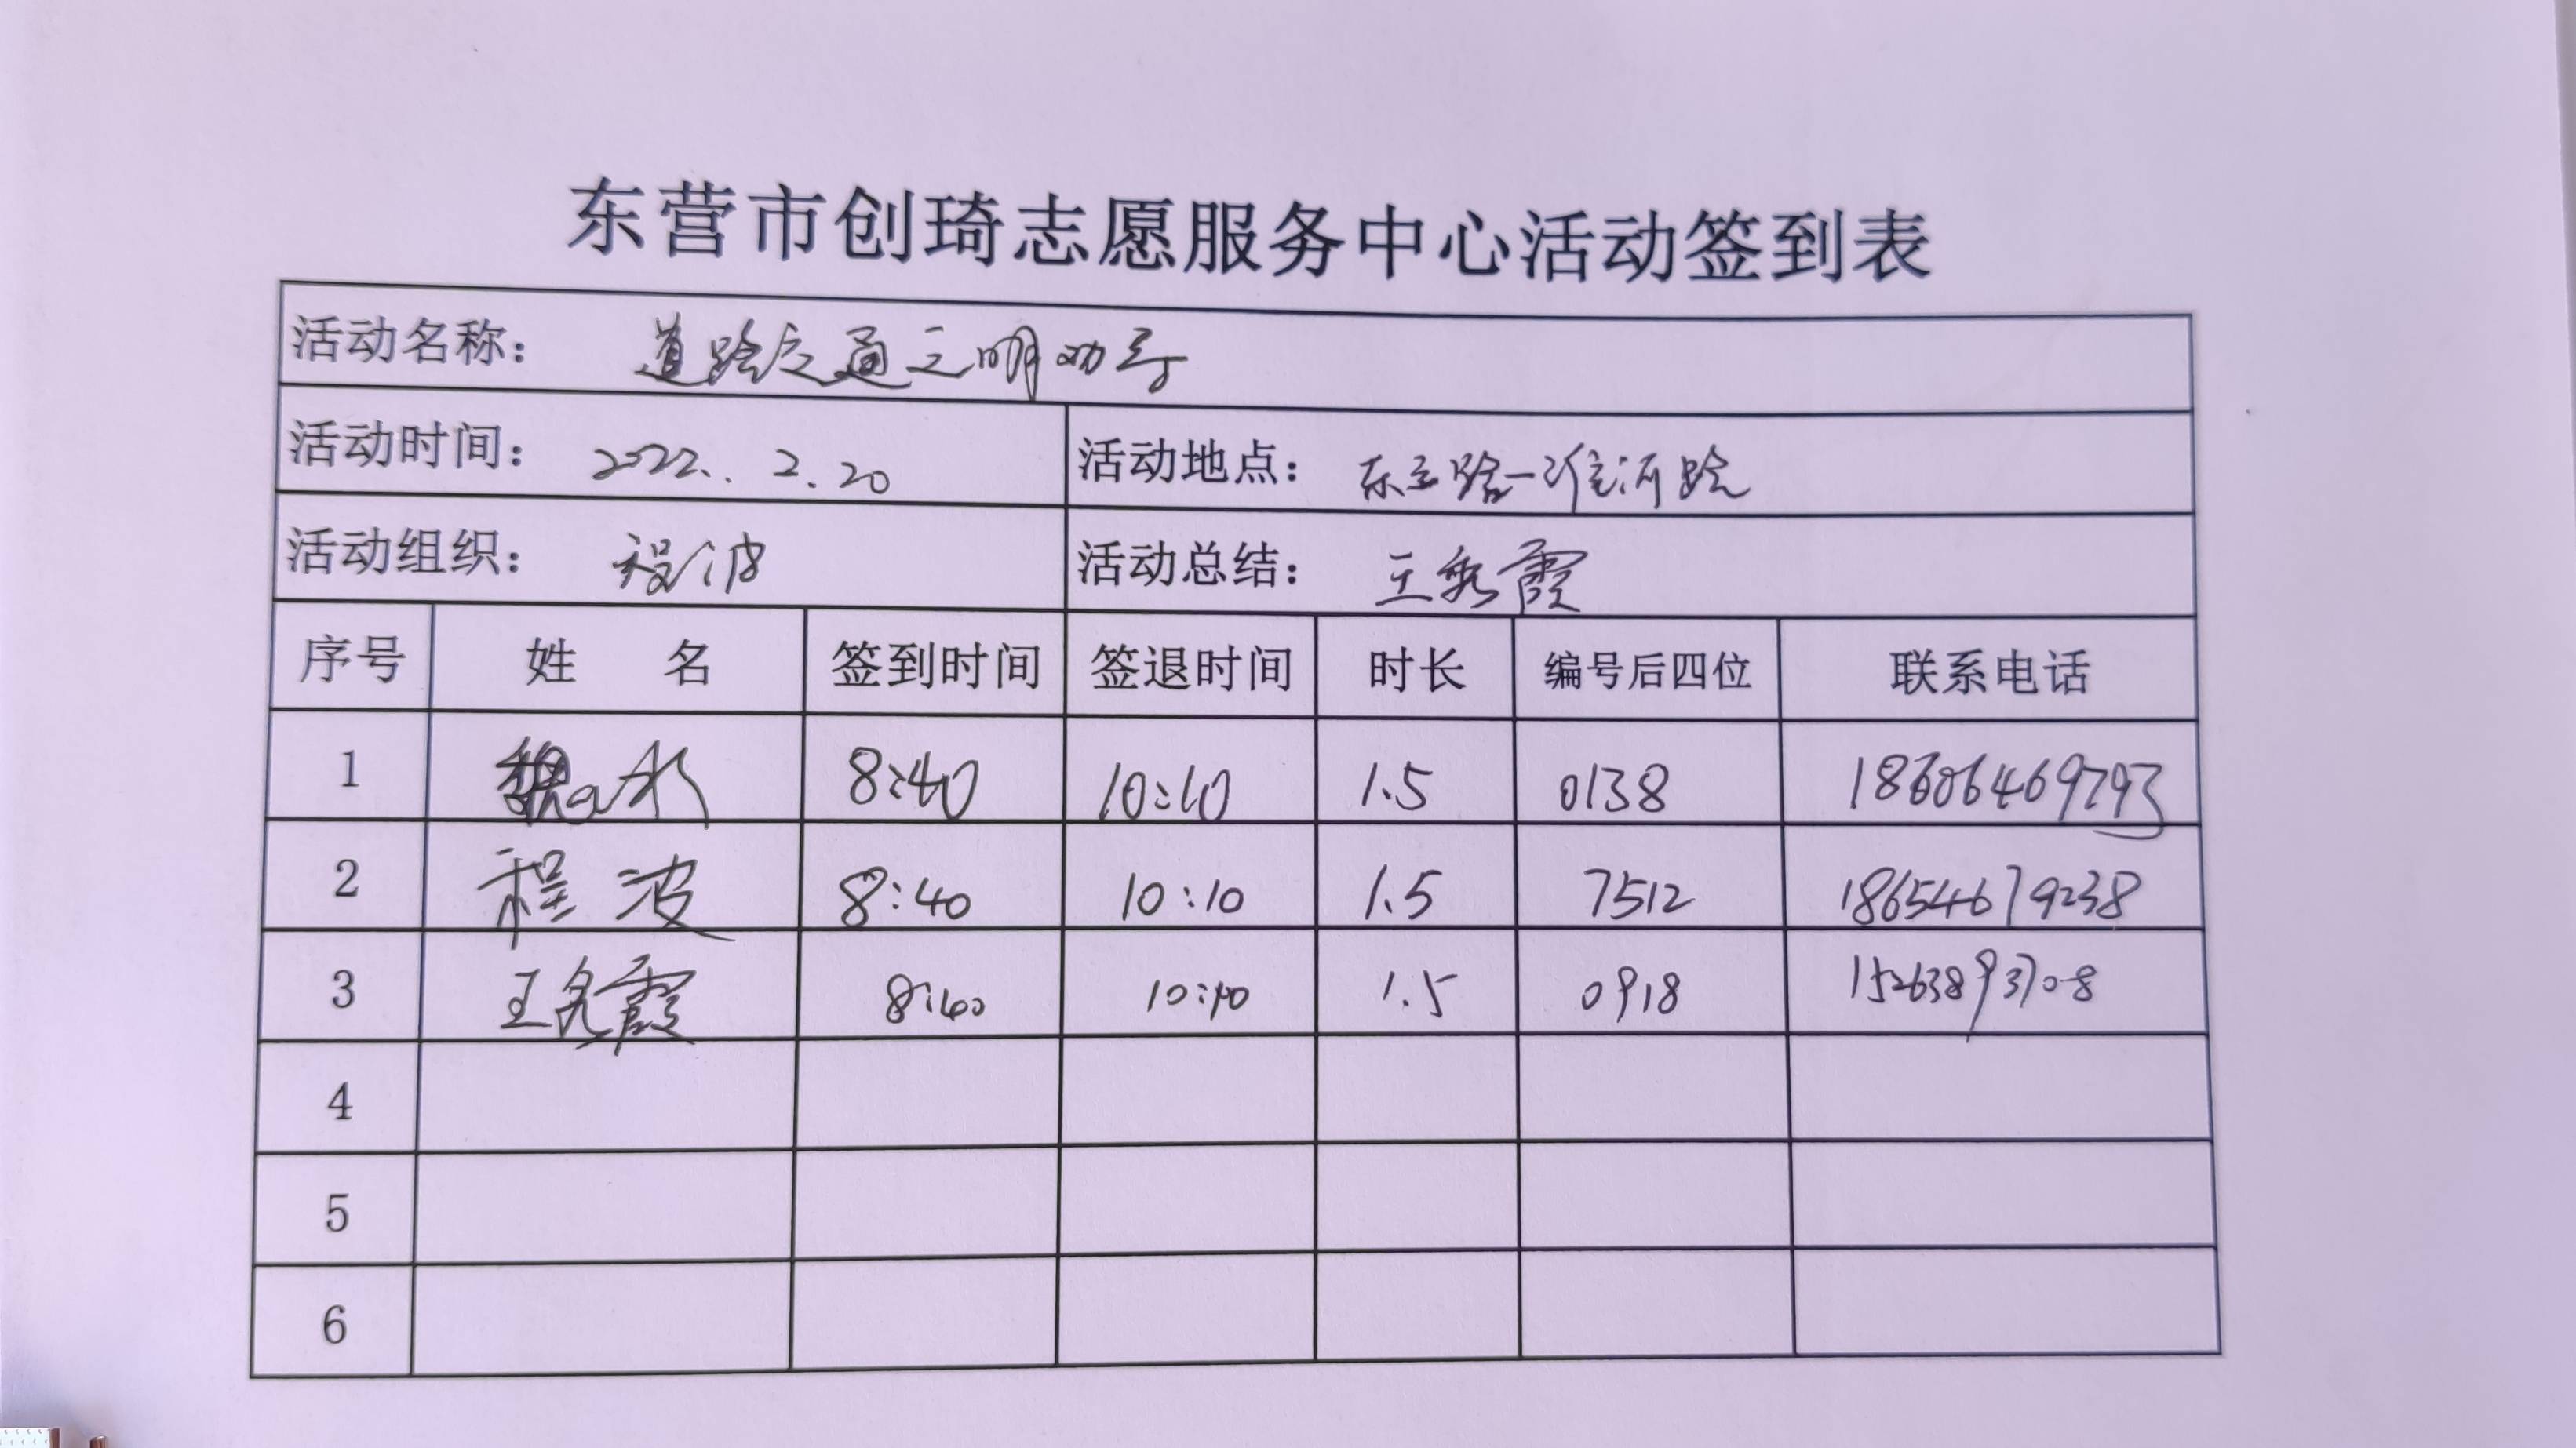 东营市创琦志愿服务中心活动签到表
活动名称： 道路交通文明劝导
活动时间： 2022. 2.20 活动地点： 东三路-淮河路
活动组织： 程波 活动总结： 王秀霞
序号 姓 名 签到时间 签退时间 时长 编号后四位 联系电话
1 魏 8:40 10:10 1.5 0138 18606469793
2 程波 8:40 10:10 1.5 7512 18654679238
3 王秀霞 8:40 10:10 1.5 0918 15263893708
4
5
6